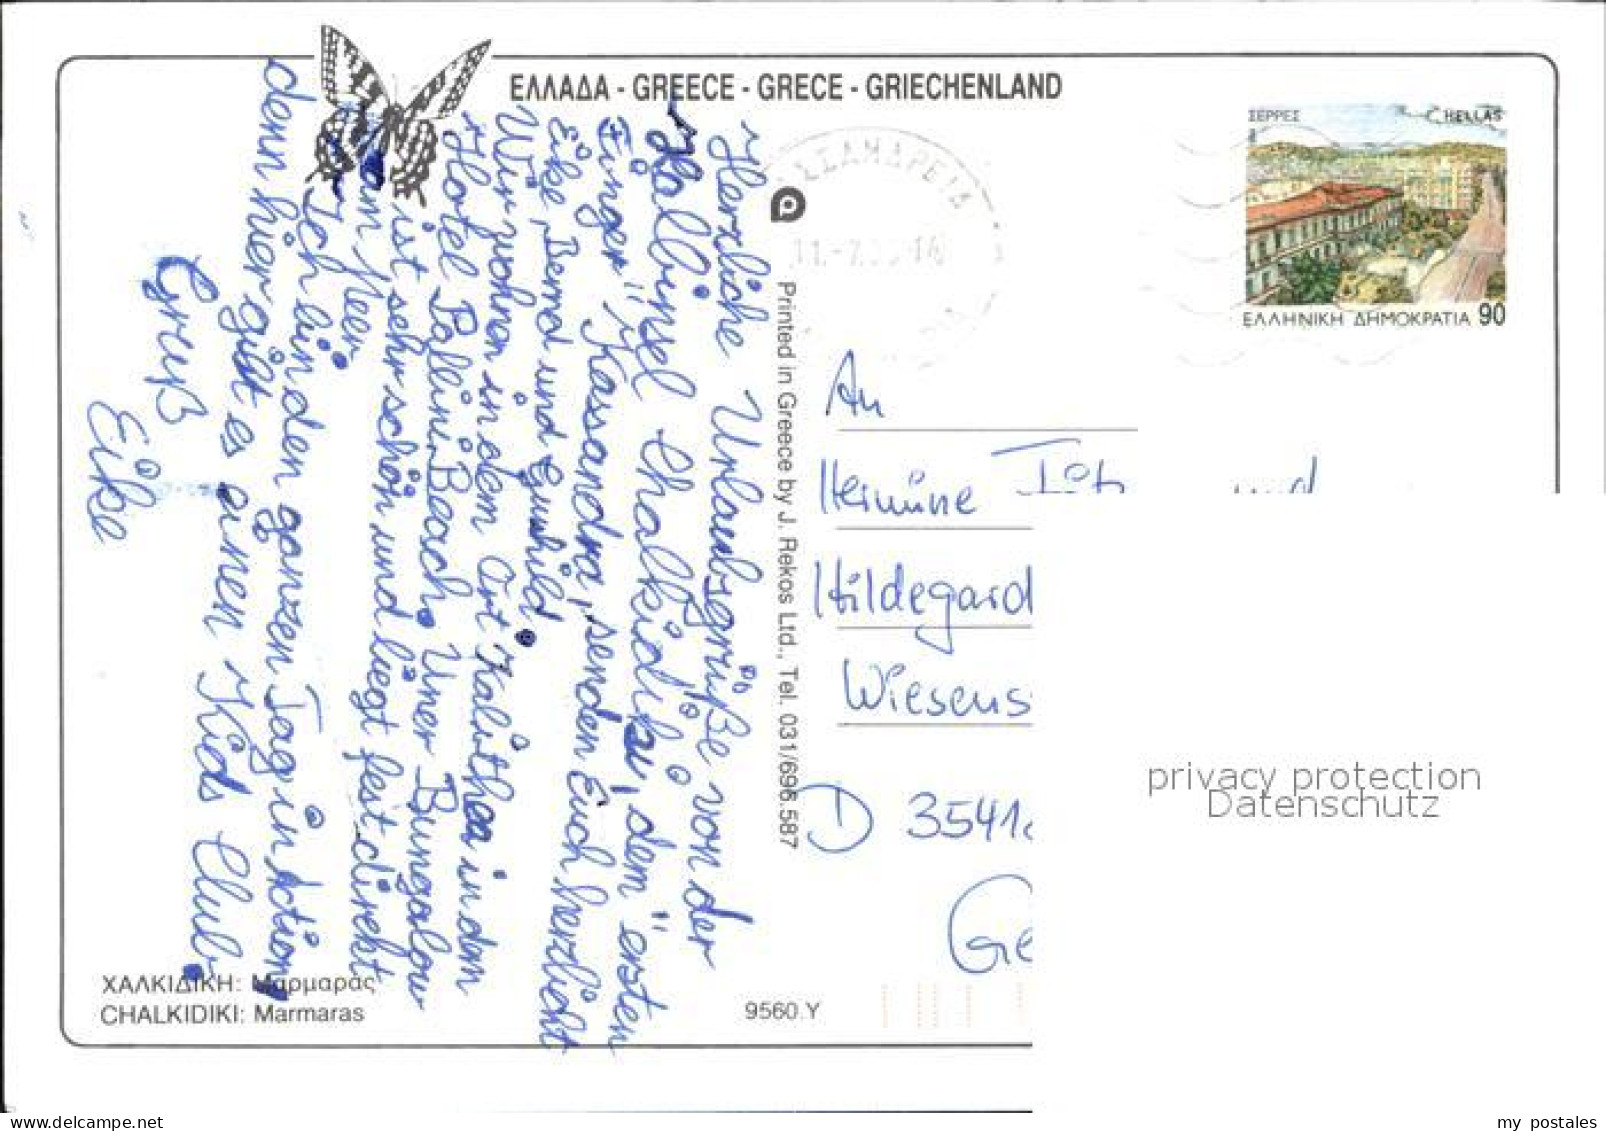 ΕΛΛΑΔΑ - GREECE - GRECE - GRIECHENLAND
ΣΕΡΡΕΣ
HELLAS
ΕΛΛΗΝΙΚΗ ΔΗΜΟΚΡΑΤΙΑ 90
11.-7.
Herzliche Urlaubsgrüße von der
Halbinsel Chalkidiki, dem "ersten
Finger" Kassandra, senden Euch herzlichst
Eike, Bernd und Gunhild.
Wir wohnen in dem Ort Kalithea in dem
Hotel Pallini Beach. Unser Bungalow
ist sehr schön und liegt fest direkt
am Meer.
Ich bin den ganzen Tag in Action,
denn hier gibt es einen Kids Club.
Gruß
Eike
Printed in Greece by J. Rekos Ltd., Tel. 031/696.587
An
Hermine und
Hildegard
Wiesens
D 3541
Ge
ΧΑΛΚΙΔΙΚΗ: Μαρμαράς
CHALKIDIKI: Marmaras
9560.Y
privacy protection
Datenschutz
www.delcampe.net
my_postales